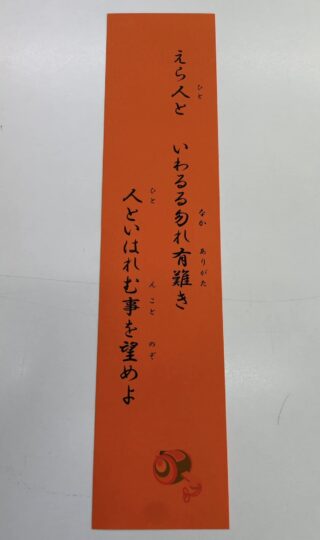 えら人と いわるる勿れ有難き
人といはれむ事を望めよ
ひと
なか ありがた
ひと
ん こと のぞ